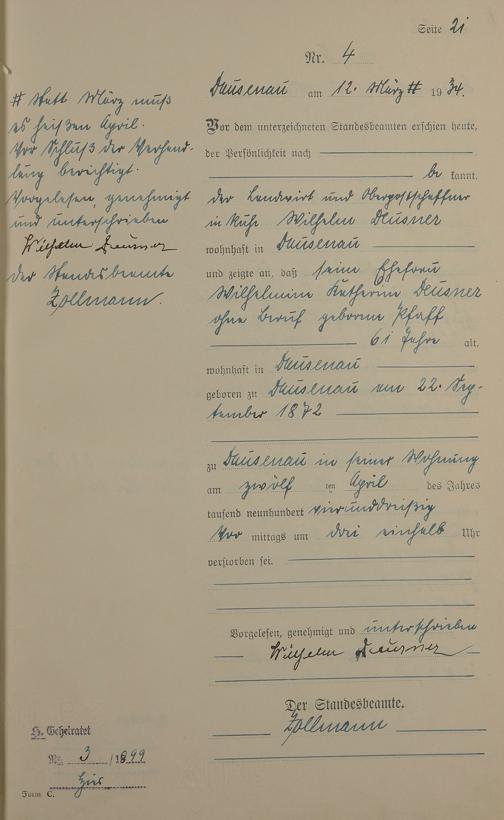 Seite 21
Nr. 4
Dausenau am 12. März # 1934.
Vor dem unterzeichneten Standesbeamten erschien heute,
der Persönlichkeit nach
be kannt,
der Landwirt und Oberpostschaffner
in Ruhe Wilhelm Deusner
wohnhaft in Dausenau
und zeigte an, daß seine Ehefrau
Wilhelmine Katherine Deusner
ohne Beruf geborene Pfaff
61 Jahre alt,
wohnhaft in Dausenau
geboren zu Dausenau am 22. Sep-
tember 1872
zu Dausenau in seiner Wohnung
am zwölf ten April des Jahres
tausend neunhundert vierunddreißig
Vor mittags um drei einhalb Uhr
verstorben sei.
Vorgelesen, genehmigt und unterschrieben
Wilhelm Deusner
Der Standesbeamte.
Zollmann
# Statt März muß
es heißen April.
Vor Schluß der Verhand-
lung berichtigt.
Vorgelesen, genehmigt
und unterschrieben
Wilhelm Deusner
Der Standesbeamte
Zollmann.
H. Geheiratet
Nr. 3 / 1899
hier
Form C.